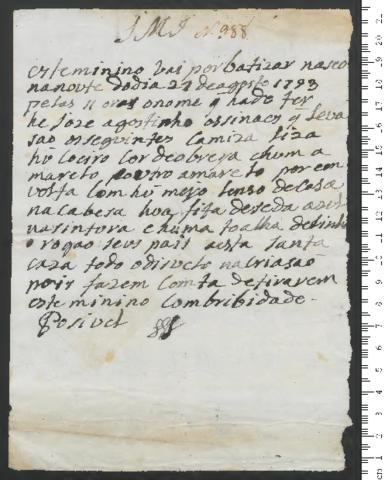 J M J N. 988
este minino vai por batizar naseo
na noute do dia 27 de agosto 1793
pelas 11 oras o nome q hade ter
he Joze agostinho os sinaes q leva
são os seguintes Camiza liza
hũ Coeiro Cor de obreya e hum a
mareto e outro amareto por em
vosta Com hũ meyo lenso de Casa
na Cabesa hua fita de seda azul
na sintura e huma toalha de linho
o rogão seus pais a esta Santa
Caza todo o disvelo na Criasaõ
pois fazem Comta de tirarem
este minino Com bribidade
Posivel